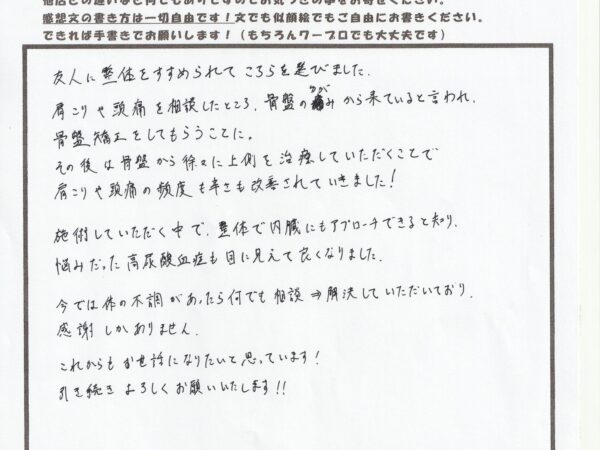 感想文の書き方は一切自由です！文でも似顔絵でもご自由にお書きください。
できれば手書きでお願いします！（もちろんワープロでも大丈夫です）
友人に整体をすすめられて こちらを選びました.
肩こりや頭痛を相談したところ, 骨盤のゆがみから来ていると言われ,
骨盤矯正をしてもらうことに.
その後は骨盤から徐々に上側を治療していただくことで
肩こりや頭痛の頻度も辛さも改善されていきました!
施術していただく中で, 整体で内臓にもアプローチできると知り,
悩みだった高尿酸血症も目に見えて良くなりました.
今では体の不調があったら何でも相談 ⇒ 解決していただいており,
感謝しかありません.
これからもお世話になりたいと思っています!
引き続きよろしくお願いいたします!!